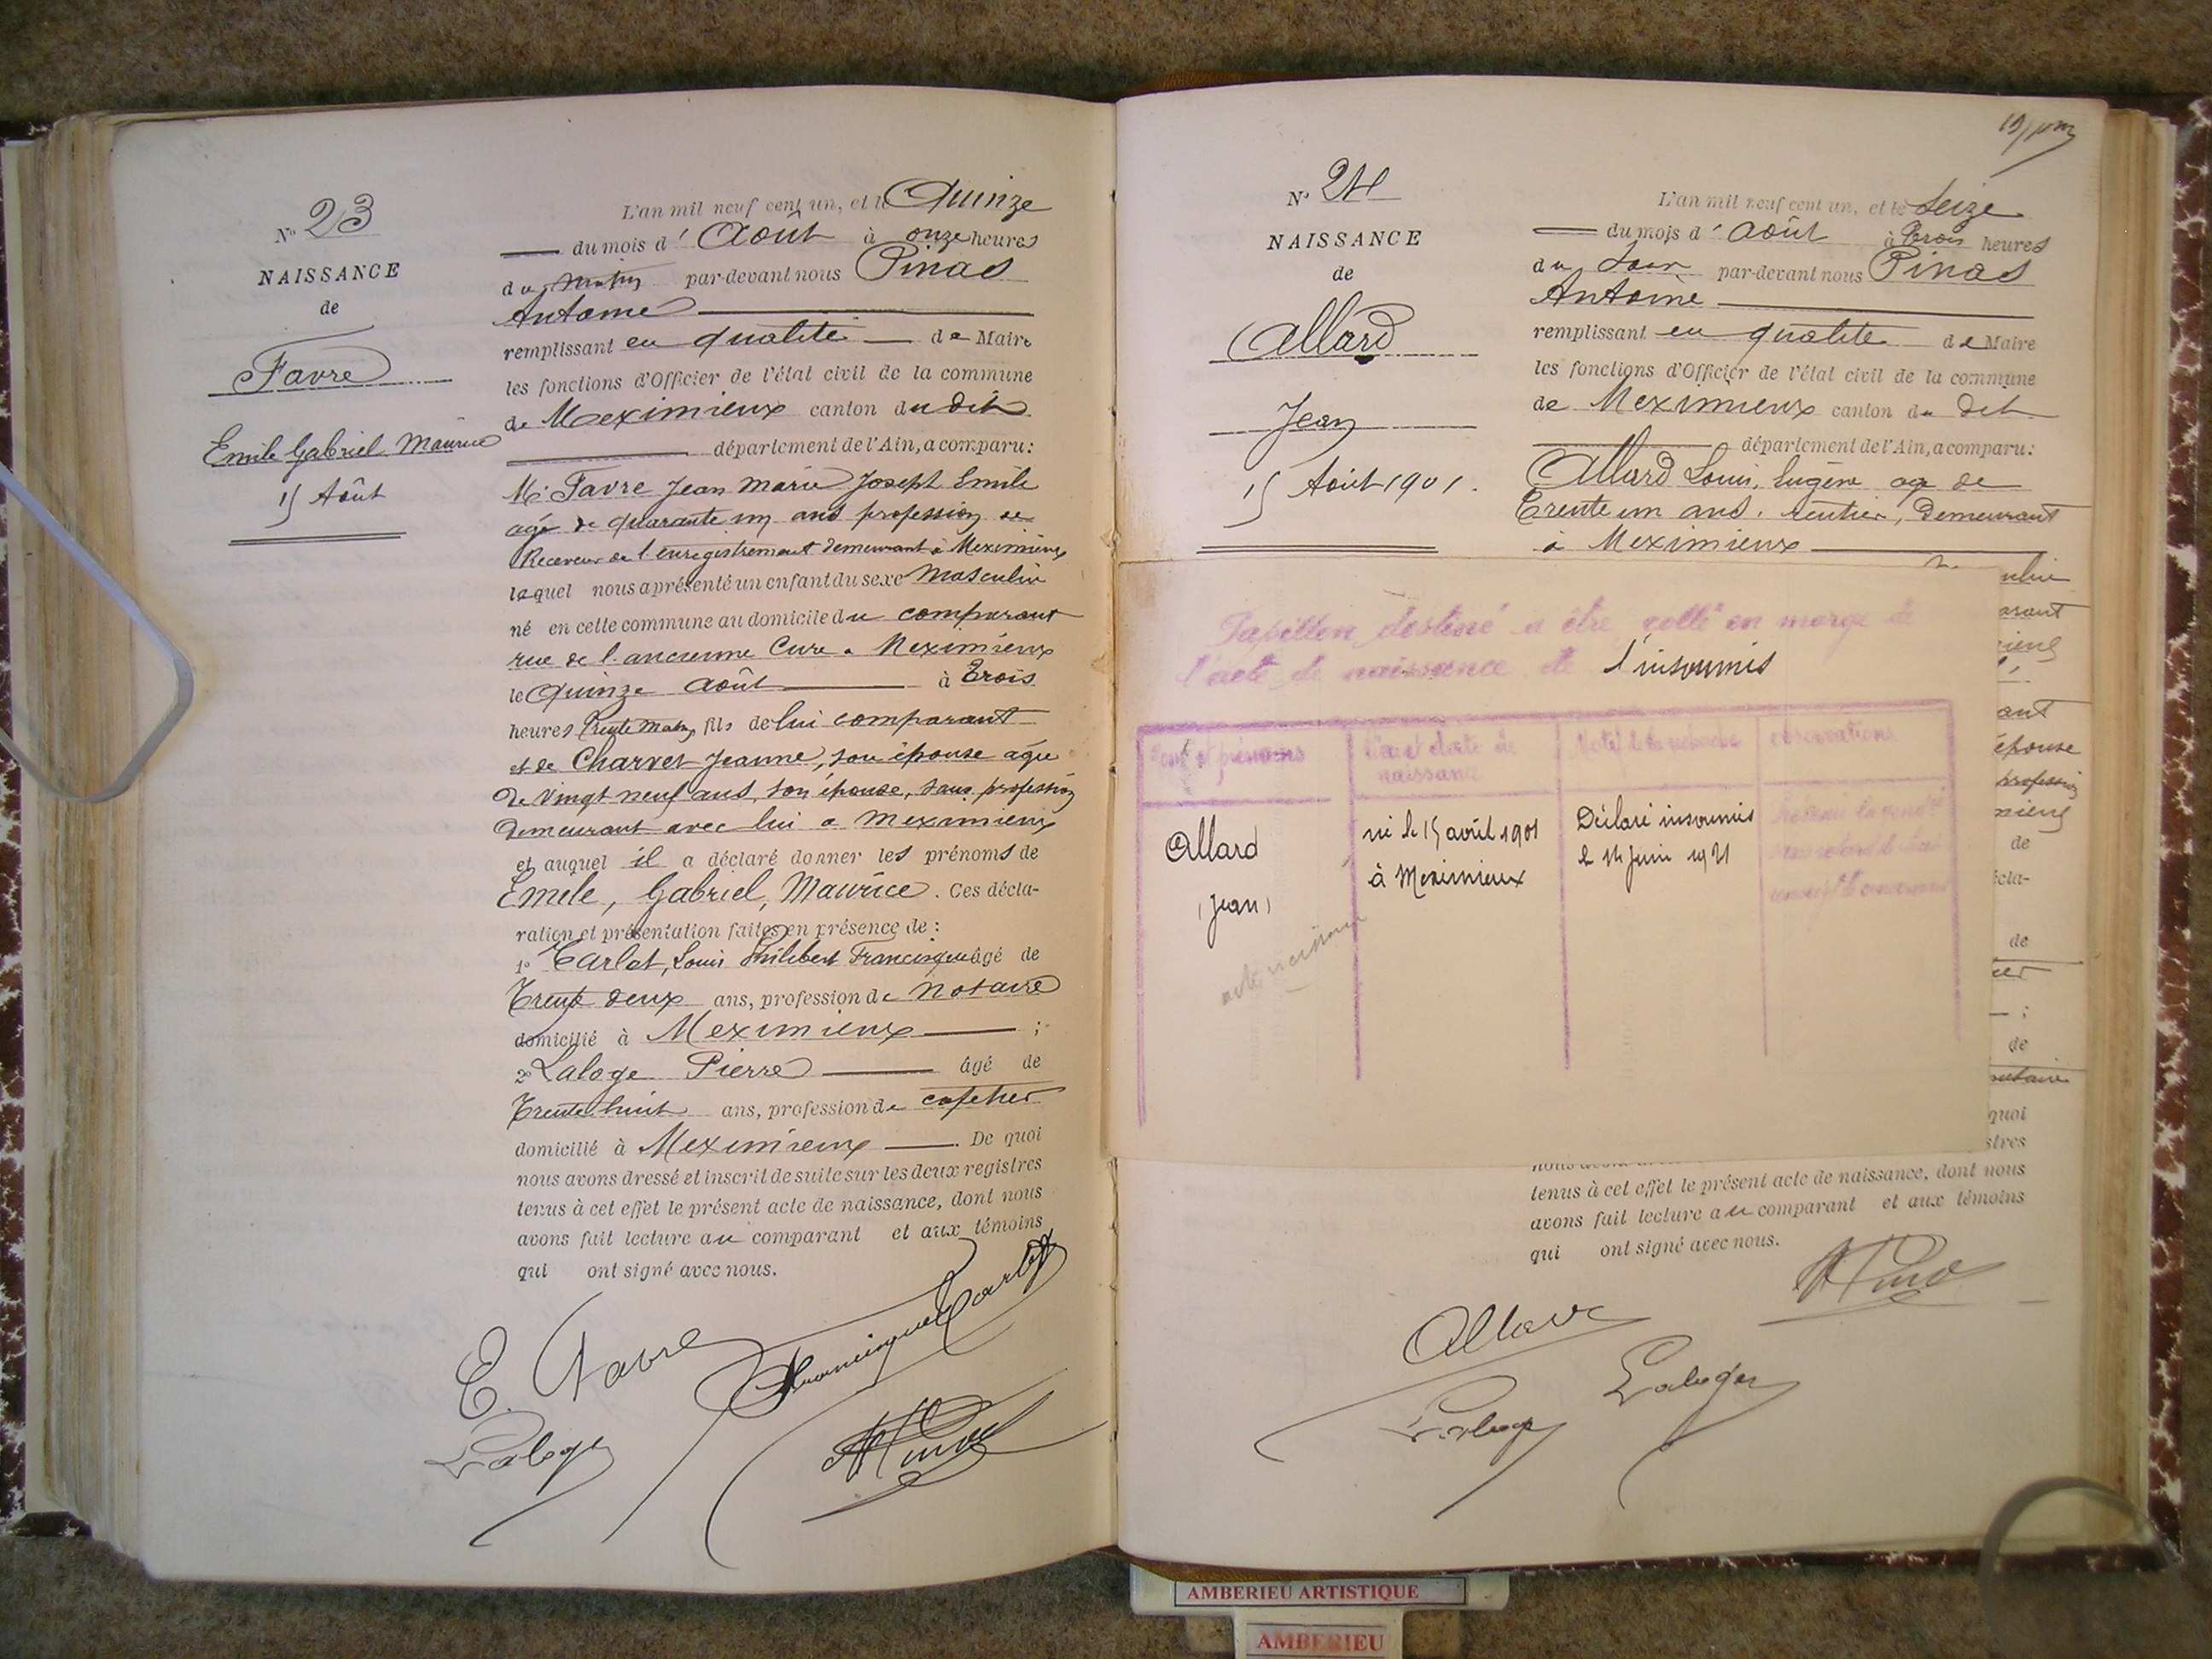 N° 23
NAISSANCE
de
Favre
Emile Gabriel Maurice
15 Août
L'an mil neuf cent un, et le Quinze
du mois d' Août à onze heures
du matin par-devant nous Pinas
Antoine
remplissant en qualité de Maire
les fonctions d'Officier de l'état civil de la commune
de Meximieux canton du dit
département de l'Ain, a comparu:
M. Favre Jean Marie Joseph Emile
agé de quarante un ans profession de
Receveur de l'enregistrement demeurant à Meximieux
lequel nous a présenté un enfant du sexe Masculin
né en cette commune au domicile du comparant
rue de l'ancienne Cure à Meximieux
le Quinze Août à Trois
heures trente matin, fils de lui comparant
et de Charvet Jeanne, son épouse agée
de Vingt neuf ans, son épouse, sans profession
demeurant avec lui à Meximieux
et auquel il a déclaré donner les prénoms de
Emile, Gabriel, Maurice. Ces décla-
ration et présentation faites en présence de :
1° Carlot, Louis Philibert Francisque âgé de
Trente deux ans, profession de notaire
domicilié à Meximieux ;
2° Laloge Pierre âgé de
Trente huit ans, profession de cafetier
domicilié à Meximieux. De quoi
nous avons dressé et inscrit de suite sur les deux registres
tenus à cet effet le présent acte de naissance, dont nous
avons fait lecture au comparant et aux témoins
qui ont signé avec nous.
E. Favre
Francisque Carlot
Laloge
N° 24
NAISSANCE
de
Allard
Jean
15 Août 1901.
L'an mil neuf cent un, et le Seize
du mois d' Août à Trois heures
du Soir par-devant nous Pinas
Antoine
remplissant en qualité de Maire
les fonctions d'Officier de l'état civil de la commune
de Meximieux canton du dit
département de l'Ain, a comparu:
Allard Louis, Eugène agé de
Trente un ans, rentier, demeurant
à Meximieux
Papillon destiné a être collé en marge de
l'acte de naissance de l'insoumis
Nom et prénoms
Lieu et date de
naissance
observations
Allard
(Jean)
né le 15 avril 1901
à Meximieux
Déclaré insoumis
le 14 Juin 1921
ulin
arant
ieux
ant
épouse
profession
mieux
de
écla-
de
;
de
quoi
stres
tenus à cet effet le présent acte de naissance, dont nous
avons fait lecture au comparant et aux témoins
qui ont signé avec nous.
Allard
Laloge
AMBERIEU ARTISTIQUE
AMBERIEU